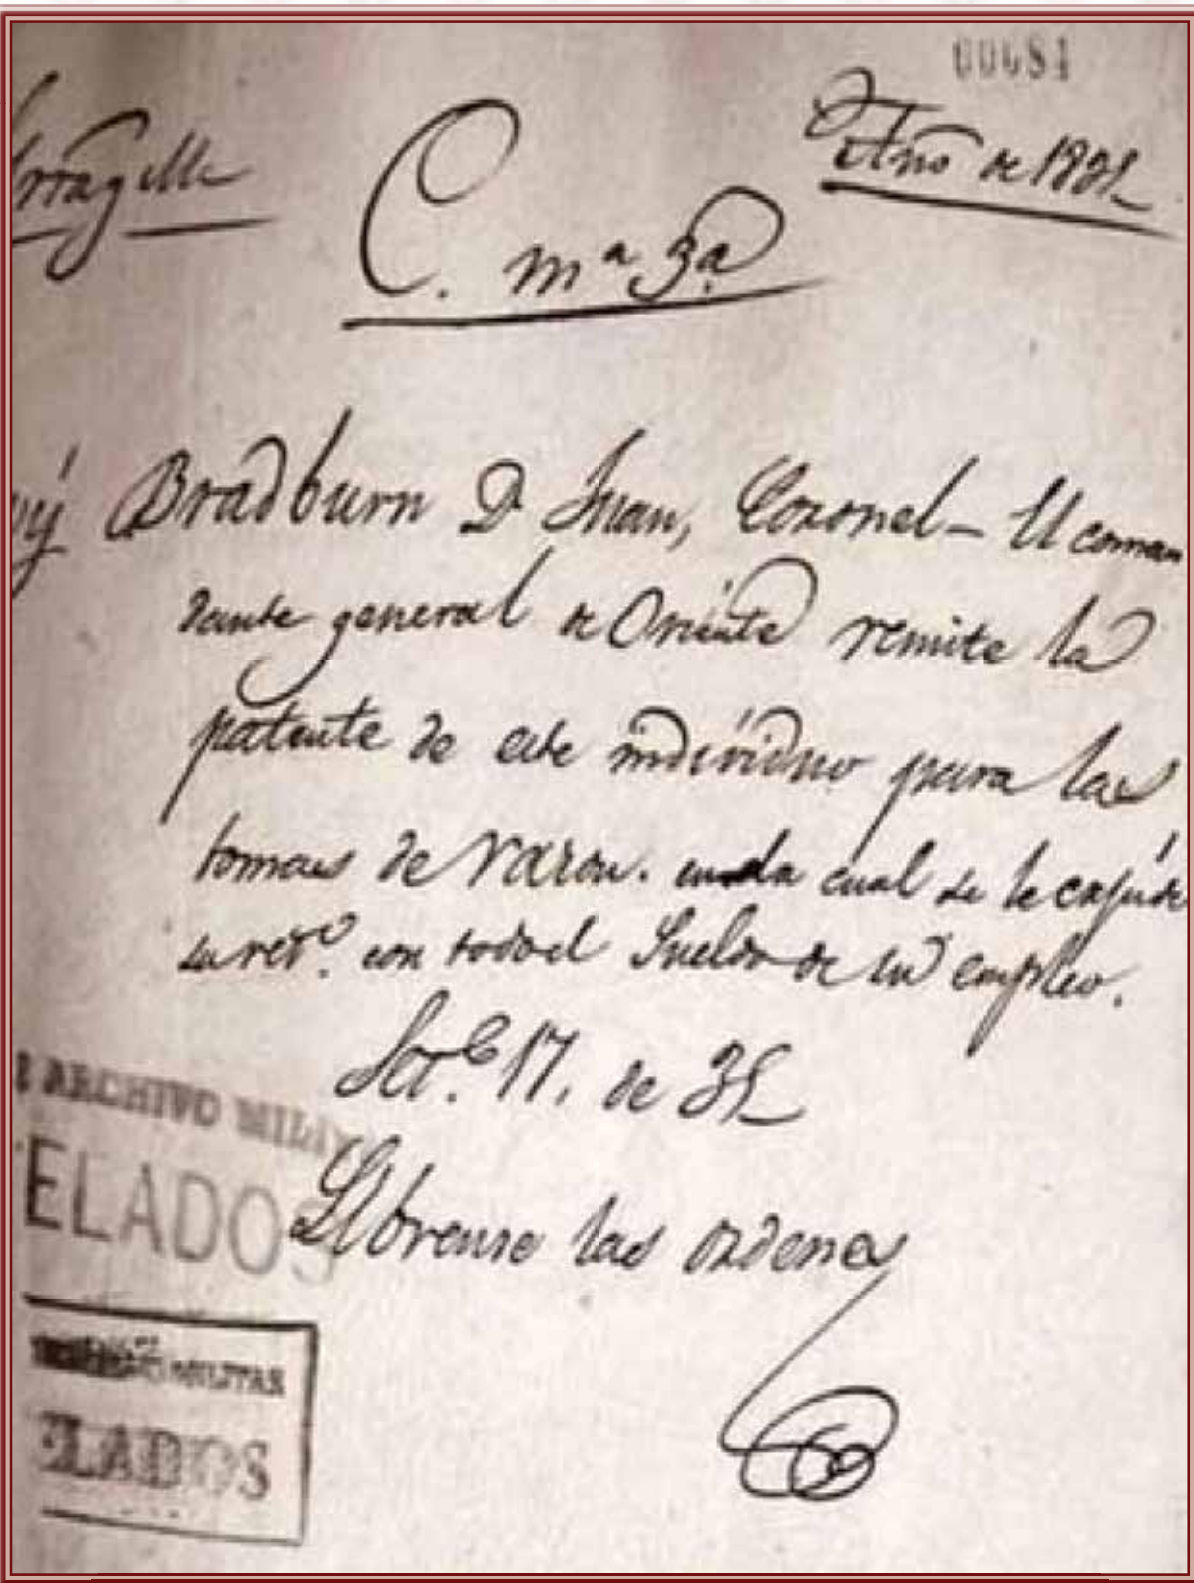 00684
C. mª 3ª
Año de 1831
Bradburn D. Juan, Coronel - El coman
dante general de Oriente remite la
patente de este individuo para las
tomas de razon. en la cual se le expide
su ret.º con todo el Sueldo de su empleo.
Set.e 17. de 35
Librense las ordenes
ARCHIVO MILI
ELADOS
MILITAR
ELADOS